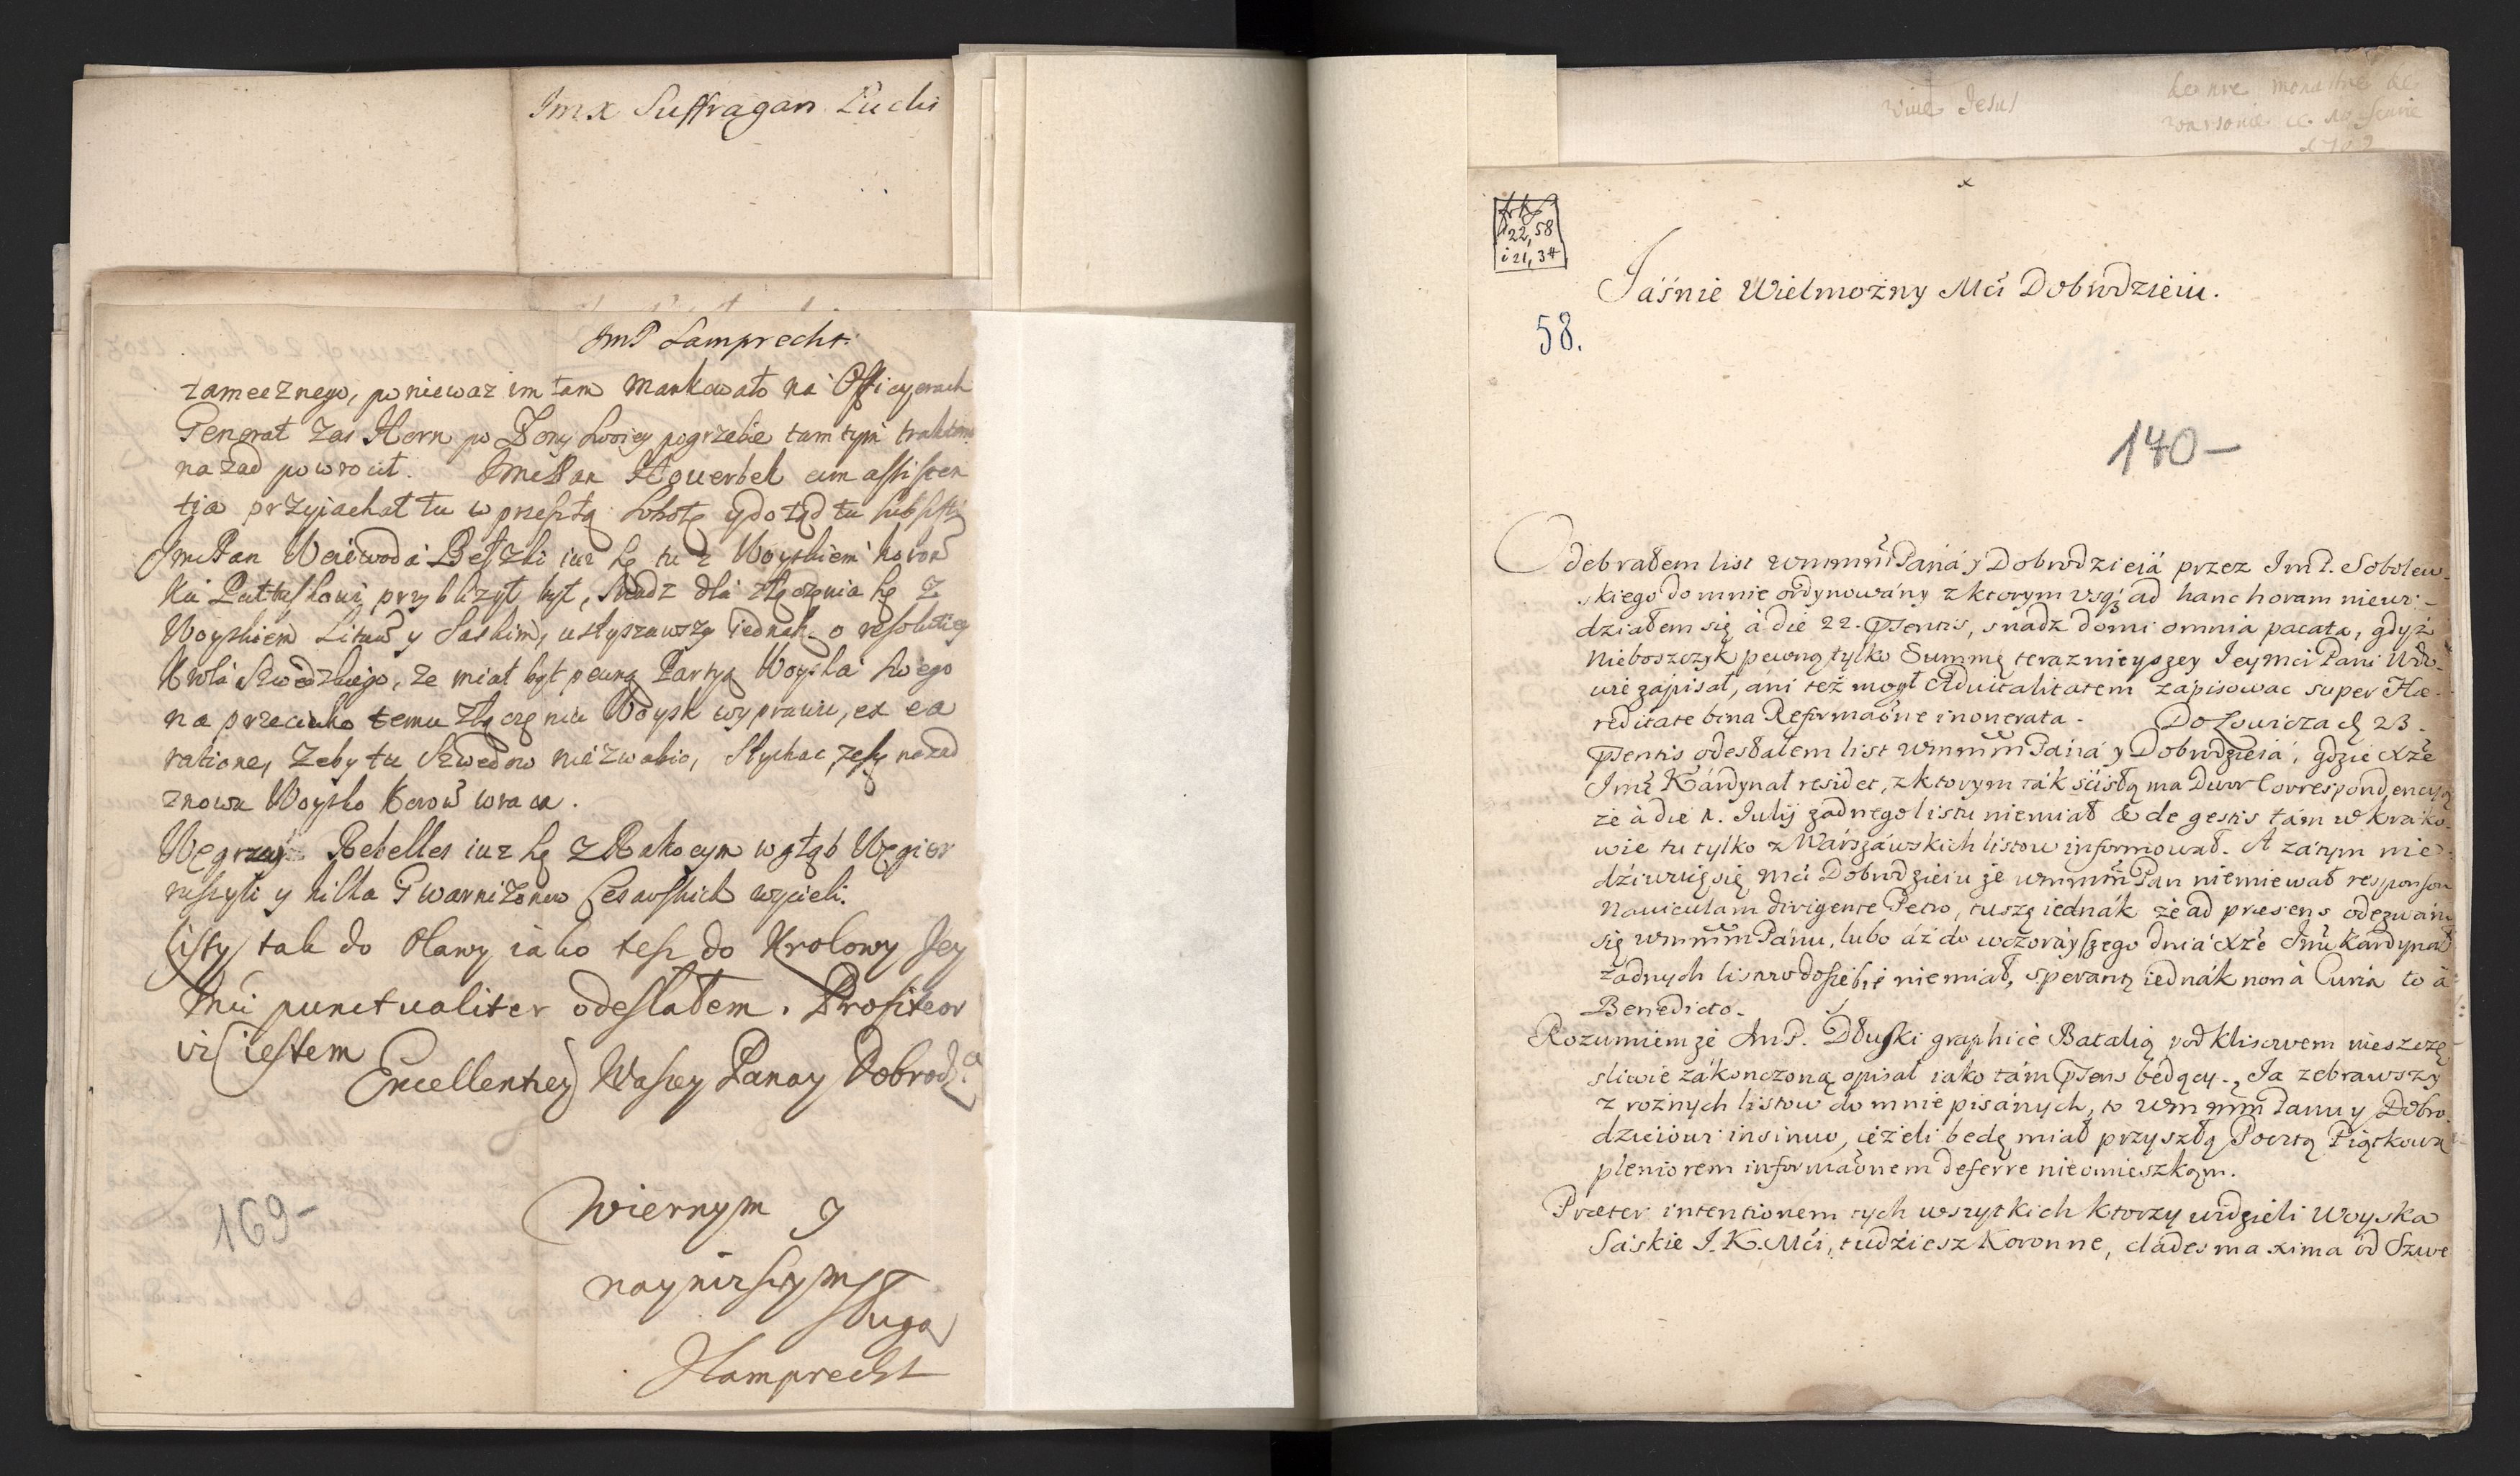 Imx Suffragan Lucki
ImP Lamprecht.
tamecznego, poniewaz im tam mankowało na Officyerach
General zas Horn po Zony swoiey pogrzebie tam tym traktem
nazad powrocił. ImćPan Hoverbek cum assisten
tia przyiachał tu w przeszłą Sobotę y dotąd tu subsisti
ImćPan Woiewoda Bełzki iuz sę tu z Woyskiem koron
ku Pułtuskowi przyblizył był, snadz dla złączenia sę z
Woyskiem Litew y Saskim, usłyszawszy iednak o resolutiey
Krola Szwedzkiego, ze miał być pewną Partyą Woyska swego
na przeciwko temu złączeniu Woysk wyprawić, ex ea
ratione, zeby tu Szwedow nie zwabić, słychac, ze sę nazad
znowu Woysko koron wraca.
Węgrzy Rebelles iuz sę z Rakocym w głąb Węgier
ruszyli y kilka Gwarnizonow Cesarskich wycieli.
Listy tak do Olawy iako tesz do Krolowy Jey
Mći punctualiter odesłałem. Profiteor
iestem
Excellentiey Waszey Panay Dobrodz.a
Wiernym y
naynizszym
sługa
Lamprecht
169-
vive Jesus
de nre monastre de
warsovie ce
1702
x
22,58
i 21,34
Jáśnie Wielmożny Mći Dobrodzieiu.
58.
140-
Odebrałem list Wmmm Páná y Dobrodzieiá przez ImP. Sobolew-
skiego do mnie ordynowány z ktorym vsq; ad hanc horam niewi-
działem się à die 22. Psentis, snadz domi omnia pacata, gdyż
Nieboszczyk pewną tylko Summę teraznieyszey Jeymci Pani Wdo-
wie zápisał, ani też mogł Advitalitatem zápisowac super Hæ-
reditate bina Reformaõne inonerata. Do Łowicza d. 23.
Psentis odesłałem list Wmmm Páná y Dobrodzieiá, gdzie Xże
Imć Kárdynał residet, z ktorym ták ściśłą ma Dwor Correspondencyą
że à die 1. Iulij żadnego listu niemiał & de gestis tám w Krako-
wie tu tylko z Wárszáwskich listow informował. A zátym nie
dźiwuię się Mći Dobrodzieiu że Wmmm Pan niemiewał responsow
Naviculam dirigente Petro, tuszę iednák że ad præsens odezwám
się Wmmm Pánu, lubo áż do wczoráyszego dniá Xże Imć Kárdynał
żadnych listow do siebie niemiał, sperant iednák non à Curia to à
Benedicto.
Rozumiem że ImP. Dłuski graphicè Batalią pod Kliszowem nieszczę
sliwie zákonczoną opisał iako tám Psens będący. Ja zebrawszy
z rożnych listow do mnie pisánych, to Wmmm Panu y Dobro
dzieiowi insinuo, ieżeli będę miał przyszłą Pocztą Piątkową
pleniorem informaõnem deferre nieomieszkam.
Præter intentionem tych wszytkich ktorzy widzieli Woyska
Sáskie J.K.Mći, tudźiesz Koronne, clades maxima od Szwe